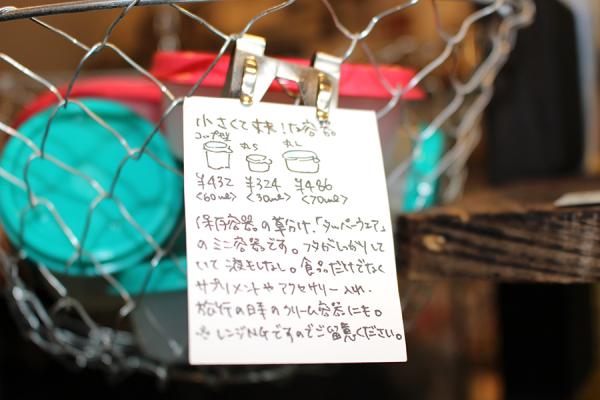 小さくて丈夫！な容器
コップ型 丸S 丸L
¥432 ¥324 ¥486
<60ml> <30ml> <70ml>
保存容器の草分け、「タッパーウェア」
のミニ容器です。フタがしっかりして
いて液もれなし。食品だけでなく
サプリメントやアクセサリー入れ、
旅行の時のクリーム容器にも。
※レンジNGですのでご留意ください。